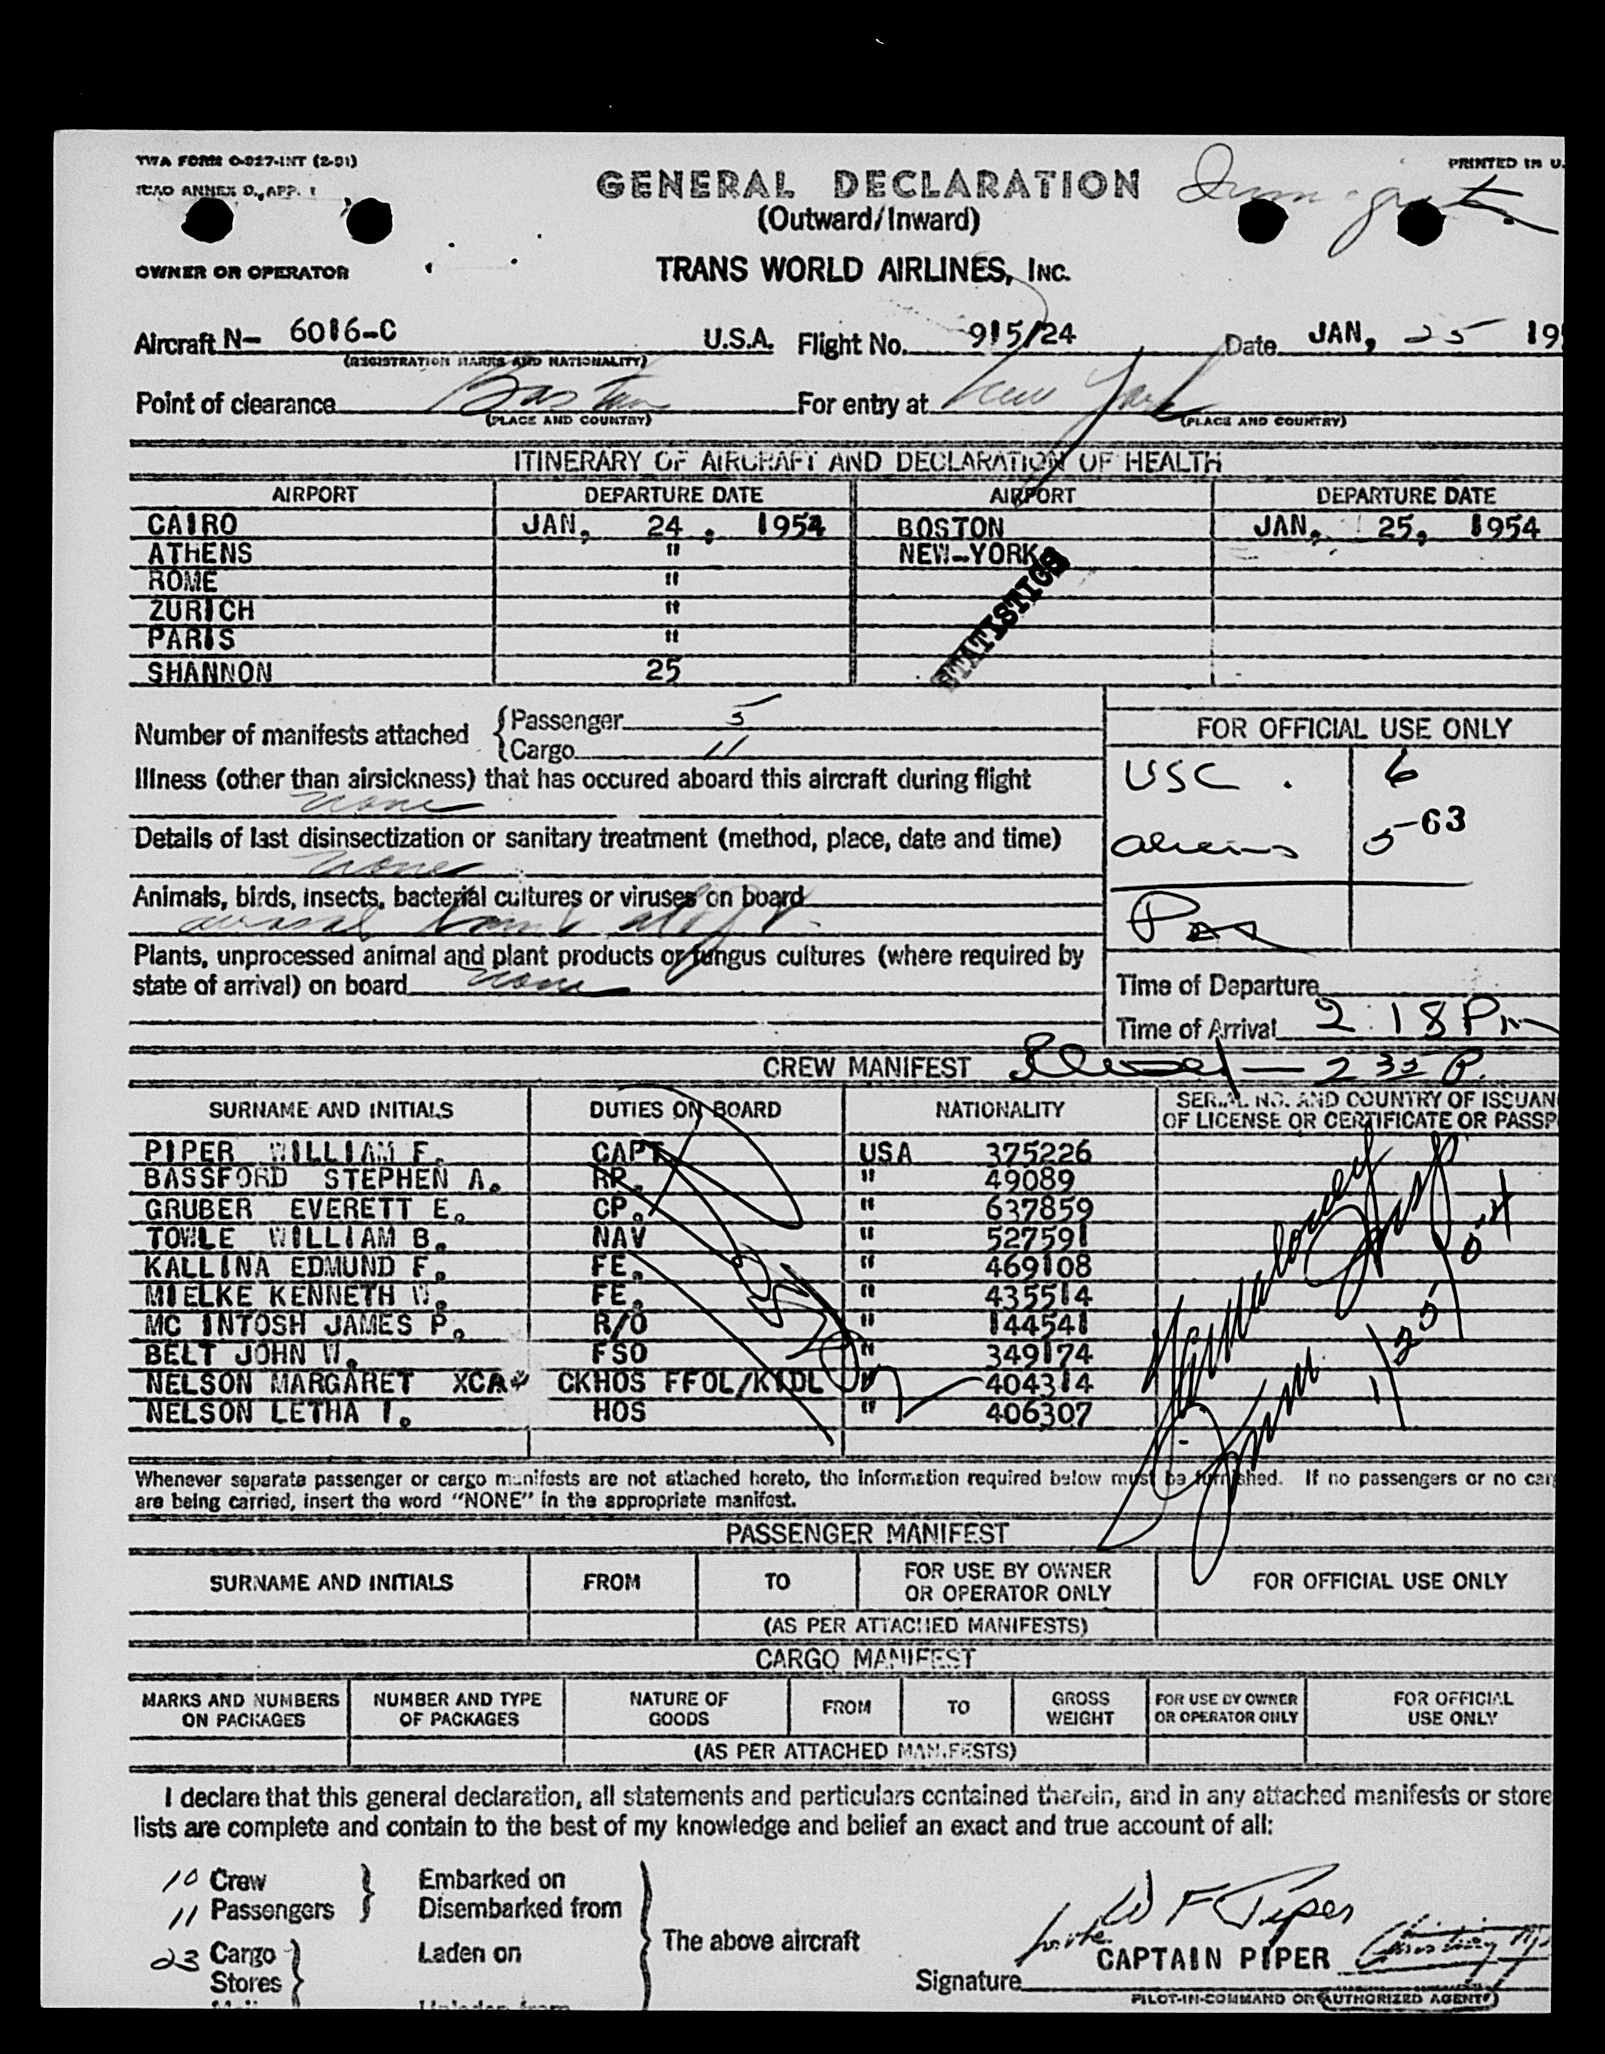 TWA FORM O-927-INT (2-51)
PRINTED IN U.
ICAO ANNEX 9, APP. 1
GENERAL DECLARATION
(Outward/Inward)
OWNER OR OPERATOR
TRANS WORLD AIRLINES, INC.
Aircraft N- 6016-C U.S.A. Flight No. 915/24 Date JAN, 25 19
(REGISTRATION MARKS AND NATIONALITY)
Point of clearance Boston For entry at New York
(PLACE AND COUNTRY) (PLACE AND COUNTRY)
ITINERARY OF AIRCRAFT AND DECLARATION OF HEALTH
AIRPORT DEPARTURE DATE AIRPORT DEPARTURE DATE
CAIRO JAN, 24, 1954 BOSTON JAN, 25, 1954
ATHENS " NEW-YORK
ROME "
ZURICH "
PARIS "
SHANNON 25
STATISTICS
Number of manifests attached {Passenger 5
{Cargo 11
FOR OFFICIAL USE ONLY
USC. 6
aliens 5 -63
Pax
Illness (other than airsickness) that has occured aboard this aircraft during flight
none
Details of last disinsectization or sanitary treatment (method, place, date and time)
none
Animals, birds, insects, bacterial cultures or viruses on board
Plants, unprocessed animal and plant products or fungus cultures (where required by
state of arrival) on board none
Time of Departure
Time of Arrival 2:18 Pm
CREW MANIFEST 2 35 P.
SURNAME AND INITIALS DUTIES ON BOARD NATIONALITY SERIAL NO. AND COUNTRY OF ISSUAN
OF LICENSE OR CERTIFICATE OR PASSP
PIPER WILLIAM F. CAPT USA 375226
BASSFORD STEPHEN A. RP. " 49089
GRUBER EVERETT E. CP. " 637859
TOWLE WILLIAM B. NAV " 527591
KALLINA EDMUND F. FE. " 469108
MIELKE KENNETH W. FE. " 435514
MC INTOSH JAMES P. R/O " 144541
BELT JOHN W. FSO " 349174
NELSON MARGARET XCA CKHOS FFOL/KTDL " 404314
NELSON LETHA T. HOS " 406307
Whenever separate passenger or cargo manifests are not attached hereto, the information required below must be furnished. If no passengers or no car
are being carried, insert the word "NONE" in the appropriate manifest.
PASSENGER MANIFEST
SURNAME AND INITIALS FROM TO FOR USE BY OWNER OR OPERATOR ONLY FOR OFFICIAL USE ONLY
(AS PER ATTACHED MANIFESTS)
CARGO MANIFEST
MARKS AND NUMBERS ON PACKAGES NUMBER AND TYPE OF PACKAGES NATURE OF GOODS FROM TO GROSS WEIGHT FOR USE BY OWNER OR OPERATOR ONLY FOR OFFICIAL USE ONLY
(AS PER ATTACHED MANIFESTS)
I declare that this general declaration, all statements and particulars contained therein, and in any attached manifests or store
lists are complete and contain to the best of my knowledge and belief an exact and true account of all:
10 Crew } Embarked on
11 Passengers } Disembarked from
23 Cargo } Laden on
Stores }
The above aircraft
W F Piper
CAPTAIN PIPER
Signature
PILOT-IN-COMMAND OR AUTHORIZED AGENT